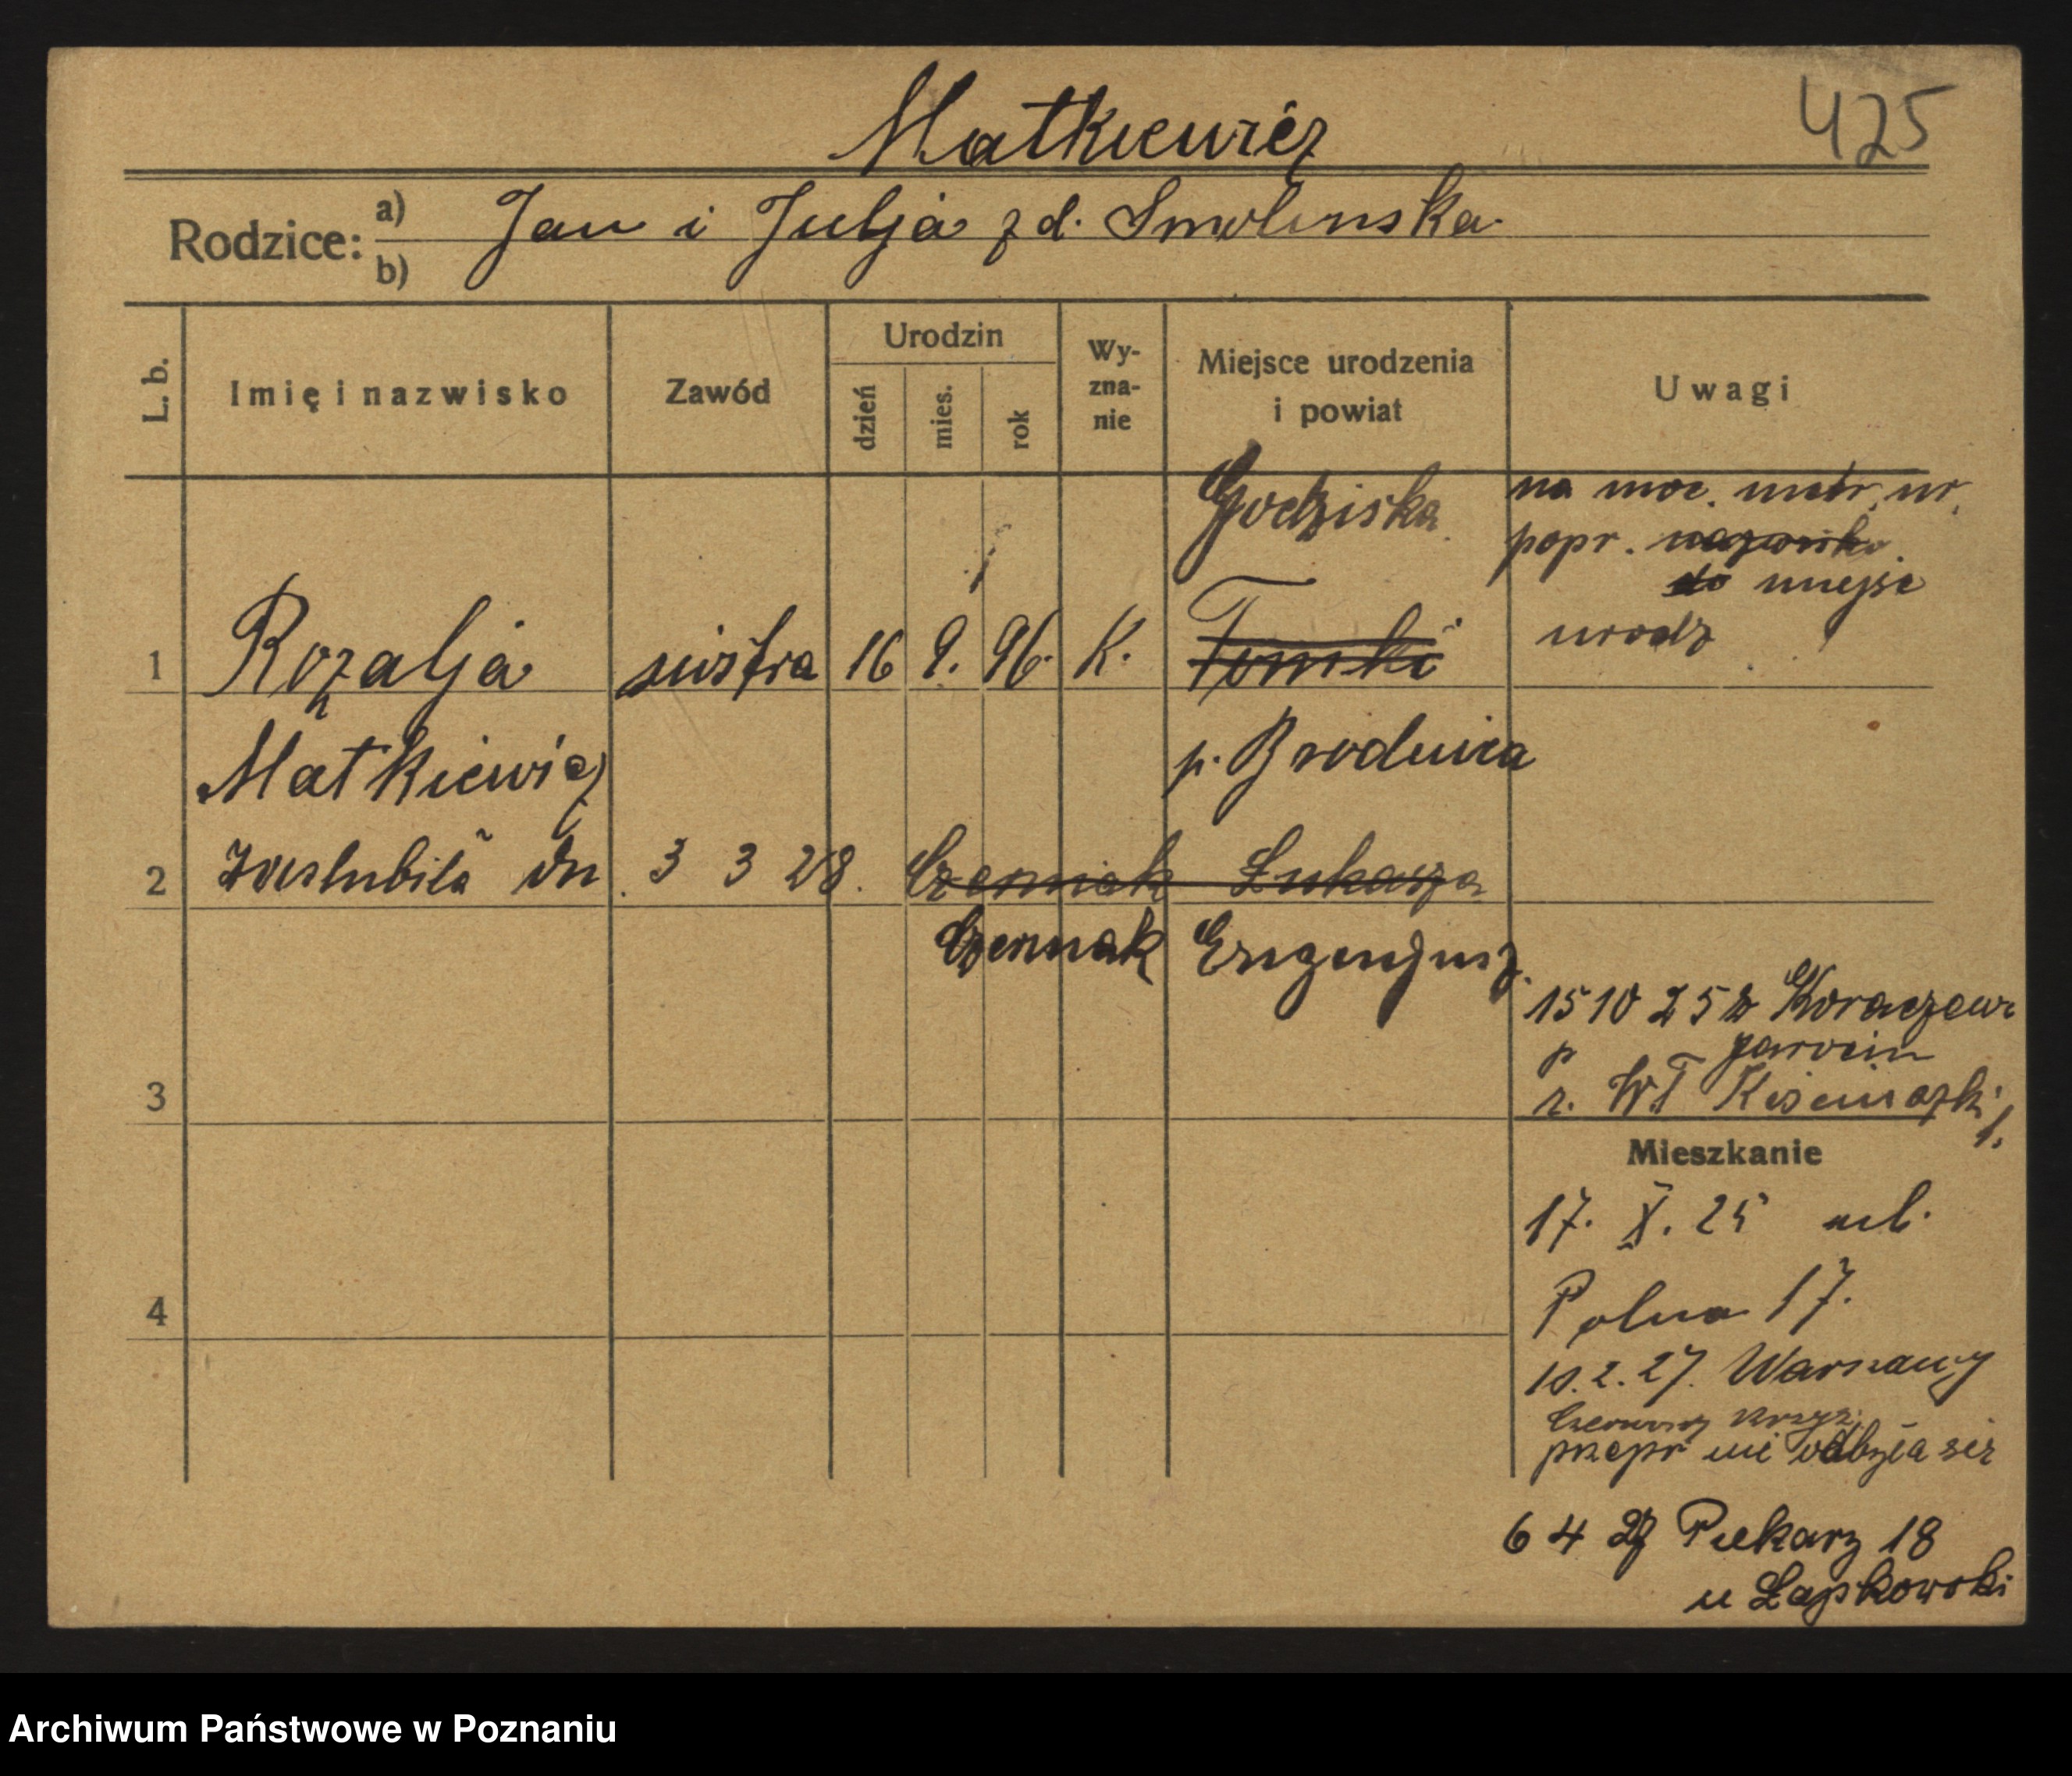 Matkiewicz
425
Rodzice: a) Jan i Julja z d. Smolinska
b)
L. b.
Imię i nazwisko
Zawód
Urodzin
dzień
mies.
rok
Wy-
zna-
nie
Miejsce urodzenia
i powiat
Uwagi
Godziska
na moc. metr. ur.
popr. nazwisko
do miejsc
urodz
1 Rozalja siostra 16 9. 96. K. Tomki
Matkiewicz p. Brodnica
2 Zaslubiła dn. 3 3 28. Czermak Łukasza
Czermak Eugenjusz
15 10 25 z
p Jarocin
3 r. WT
Mieszkanie
17. X. 25 ul.
4 Polna 17.
10.2.27. Warszawy
Czerwony Krzyż
przepr nie odbyła sie
6 4 27 Piekary 18
u Łapkowski
Archiwum Państwowe w Poznaniu